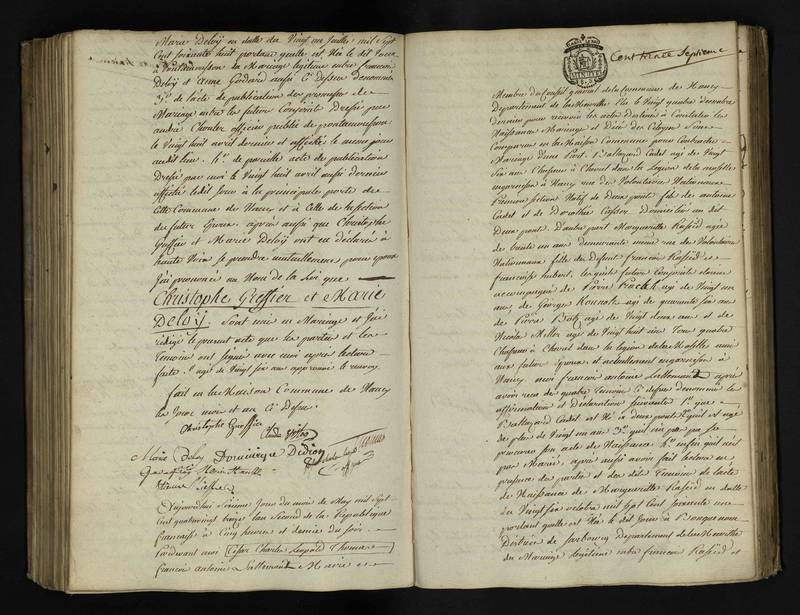 Marie Deloÿ en datte du Vingt un Juillet mil Sept
Cent soixante huit portant qu'elle est Née le dit Jour
à Pontamousson du Mariage légitime entre francois
Deloÿ et anne Godard aussi Ci dessus dénommés
3.° de l'acte de publication des promesses de
Mariage entre les futurs Conjoints Dressé par
andré Chouler officier public de pontamousson
le Vingt huit avril dernier et affiché le meme jour
audit lieu. 4.° de pareille acte de publication
Dressé par moi le Vingt huit avril aussi dernier
affiché ledit Jour à la principale porte de
Cette Commune de Nancy et à Celle de la section
du futur Epoux. après aussi que Christophe
Greffier et Marie Deloÿ ont eu déclaré à
haute Voix se prendre mutuellement pour epoux
J'ai prononcé au Nom de la Loi que
Christophe Greffier et Marie
Deloÿ. Sont unis en Mariage et J'ai
rédigé le present acte que les parties et les
Temoins ont signé avec moi apres lecture
faite. agé de Vingt six ans approuvé le renvoy
fait en la Maison Commune de Nancy
les Jour mois et an Ci Dessus.
Christophe Greffier
Claude
Marie Deloy Dominique Didion
Aujourdhui Seizieme Jour du mois de May mil Sept
Cent quatrevingt treize l'an Second de la République
francaise à Cinq heures et demie du soir.
Pardevant moi [César Charles Léopold Thomas]
francois antoine Lallemant Marie
Cent trente Septieme
Membre du Conseil general de la Commune de Nancy
Departement de la Meurthe Elu le Vingt quatre décembre
dernier pour recevoir les actes destinés à Constater les
Naissances Mariages et Décès des Citoyens Sont
Comparus en la Maison Commune pour Contracter
Mariage d'une Part. Balthazard Cadet agé de Vingt
Six ans Chasseur à Cheval dans la Legion de la moselle
engarnison à Nancy rue des Volontaires Nationaux
premiere section Natif de Deux ponts fils de antoine
Cadet et de Dorothée Domiciliés au dit
Deux ponts. D'autre part Marguerittte Rassed agée
de trente un ans demeurante même rue des Volontaires
Nationaux fille du Défunt Francois Rassed et
francoise hubert, lesquels futurs Conjoints étoient
accompagnés de Pierre agé de Vingt un
ans, de Georges agé de quarante six ans
de Pierre agé de Vingt deux ans et de
Nicolas Miller agé de Vingt huit ans Tous quatre
Chasseurs à Cheval dans la legion de la Moselle
aux futurs Epoux et actuellement engarnison à
Nancy moi francois antoine Lallemant après
avoir recu des quatre Temoins Ci dessus dénommés les
affirmation et Déclaration suivante 1.° que
Balthazard Cadet est Né à deux ponts 2.° quil est agé
de plus de Vingt un ans 3.° quil n'a pas pu se
procurer son acte de Naissance 4.° enfin quil n'est
pas Marié. après aussi avoir fait lecture en
presence des parties et des dits Temoins de l'acte
de Naissance de Marguerittte Rassed en datte
du Vingt six octobre mil Sept Cent soixante un
portant qu'elle est Née le dit Jour à
District de Sarbourg Departement de la Meurthe
du Mariage légitime entre francois Rassed et